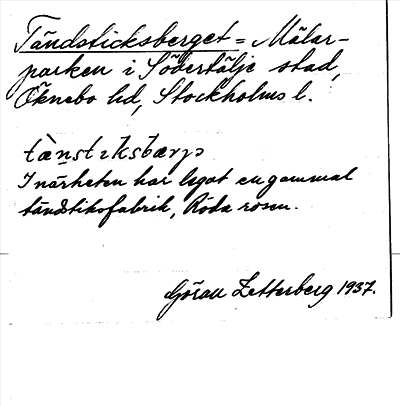 Tändsticksberget = Mälar-
parken i Södertälje stad,
Öknebo hd, Stockholms l.
tæ̀ṇstıksbærjə
I närheten har legat en gammal
tändstiksfabrik, Röda rosen.
Göran Zetterberg 1937.